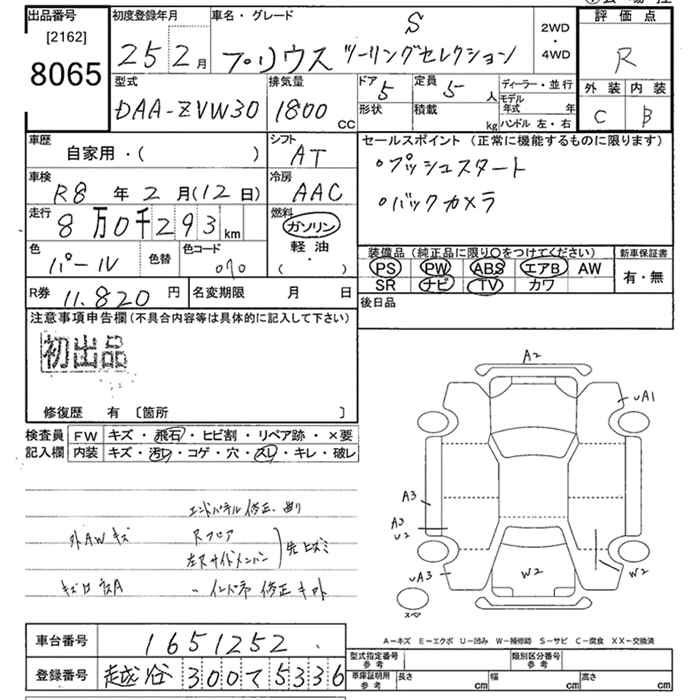 出品番号
[2162]
8065
初度登録年月
25 2 月
車名・グレード
S
プリウス ツーリングセレクション
2WD
・
4WD
評価点
R
外装 内装
C B
型式
DAA-ZVW30
排気量
1800 cc
ドア 5
形状
定員 5 人
積載 kg
ディーラー・並行
モデル年式 年
ハンドル 左・右
車歴
自家用・( )
シフト
AT
セールスポイント (正常に機能するものに限ります)
○プッシュスタート
○バックカメラ
車検
R8 年 2 月(12 日)
冷房
AAC
走行
8 万 0 千 293 km
燃料
ガソリン
軽油
( ・ )
色
パール
色替
色コード
070
装備品 (純正品に限り○をつけてください)
PS PW ABS エアB AW
SR ナビ TV カワ
新車保証書
有・無
R券 11.820 円
名変期限 月 日
後日品
注意事項申告欄(不具合内容等は具体的に記入して下さい)
初出品
修復歴 有 〔箇所 〕
検査員
記入欄
FW キズ・飛石・ヒビ割・リペア跡・×要
内装 キズ・汚レ・コゲ・穴・スレ・キレ・破レ
エンドパネル 修正、曲り
外AWキズ
Rフロア
左右サイドメンバー
A2
uA1
A3
A3
U2
uA3
W2
W2
スペア
A-キズ E-エクボ U-凹み W-補修跡 S-サビ C-腐食 XX-交換済
車台番号 1651252
登録番号 越谷 300 て 5336
型式指定番号
参考
類別区分番号
参考
車庫証明用
参考
長さ cm
幅 cm
高さ cm